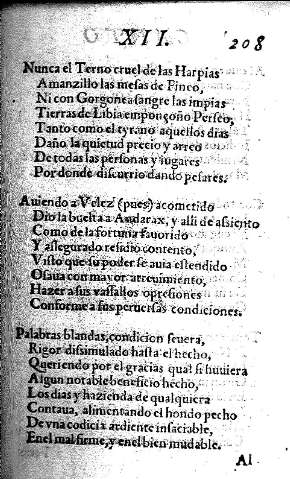 XII. 208
Nunca el Terno cruel de las Harpias
Amanzillo las mesas de Fineo,
Ni con Gorgonea sangre las impias
Tierras de Libia emponçoño Perseo,
Tanto como el tyrano aquellos dias
Daño la quietud precio y arreo
De todas las personas y lugares
Por donde discurrio dando pesares.
Auiendo a Velez (pues) acometido
Dio la buelta a Andarax, y alli de assiento
Como de la fortuna fauorido
Y assegurado residio contento,
Visto que su poder se auia estendido
Osaua con mayor atreuimiento,
Hazer a sus vassallos opresiones
Conforme a sus peruersas condiciones.
Palabras blandas, condicion seuera,
Rigor dissimulado hasta el hecho,
Queriendo por el gracias qual si huuiera
Algun notable beneficio hecho,
Los dias y hazienda de qualquiera
Contaua, alimentando el hondo pecho
De vna codicia ardiente insaciable,
En el mal firme, y en el bien mudable.
Al